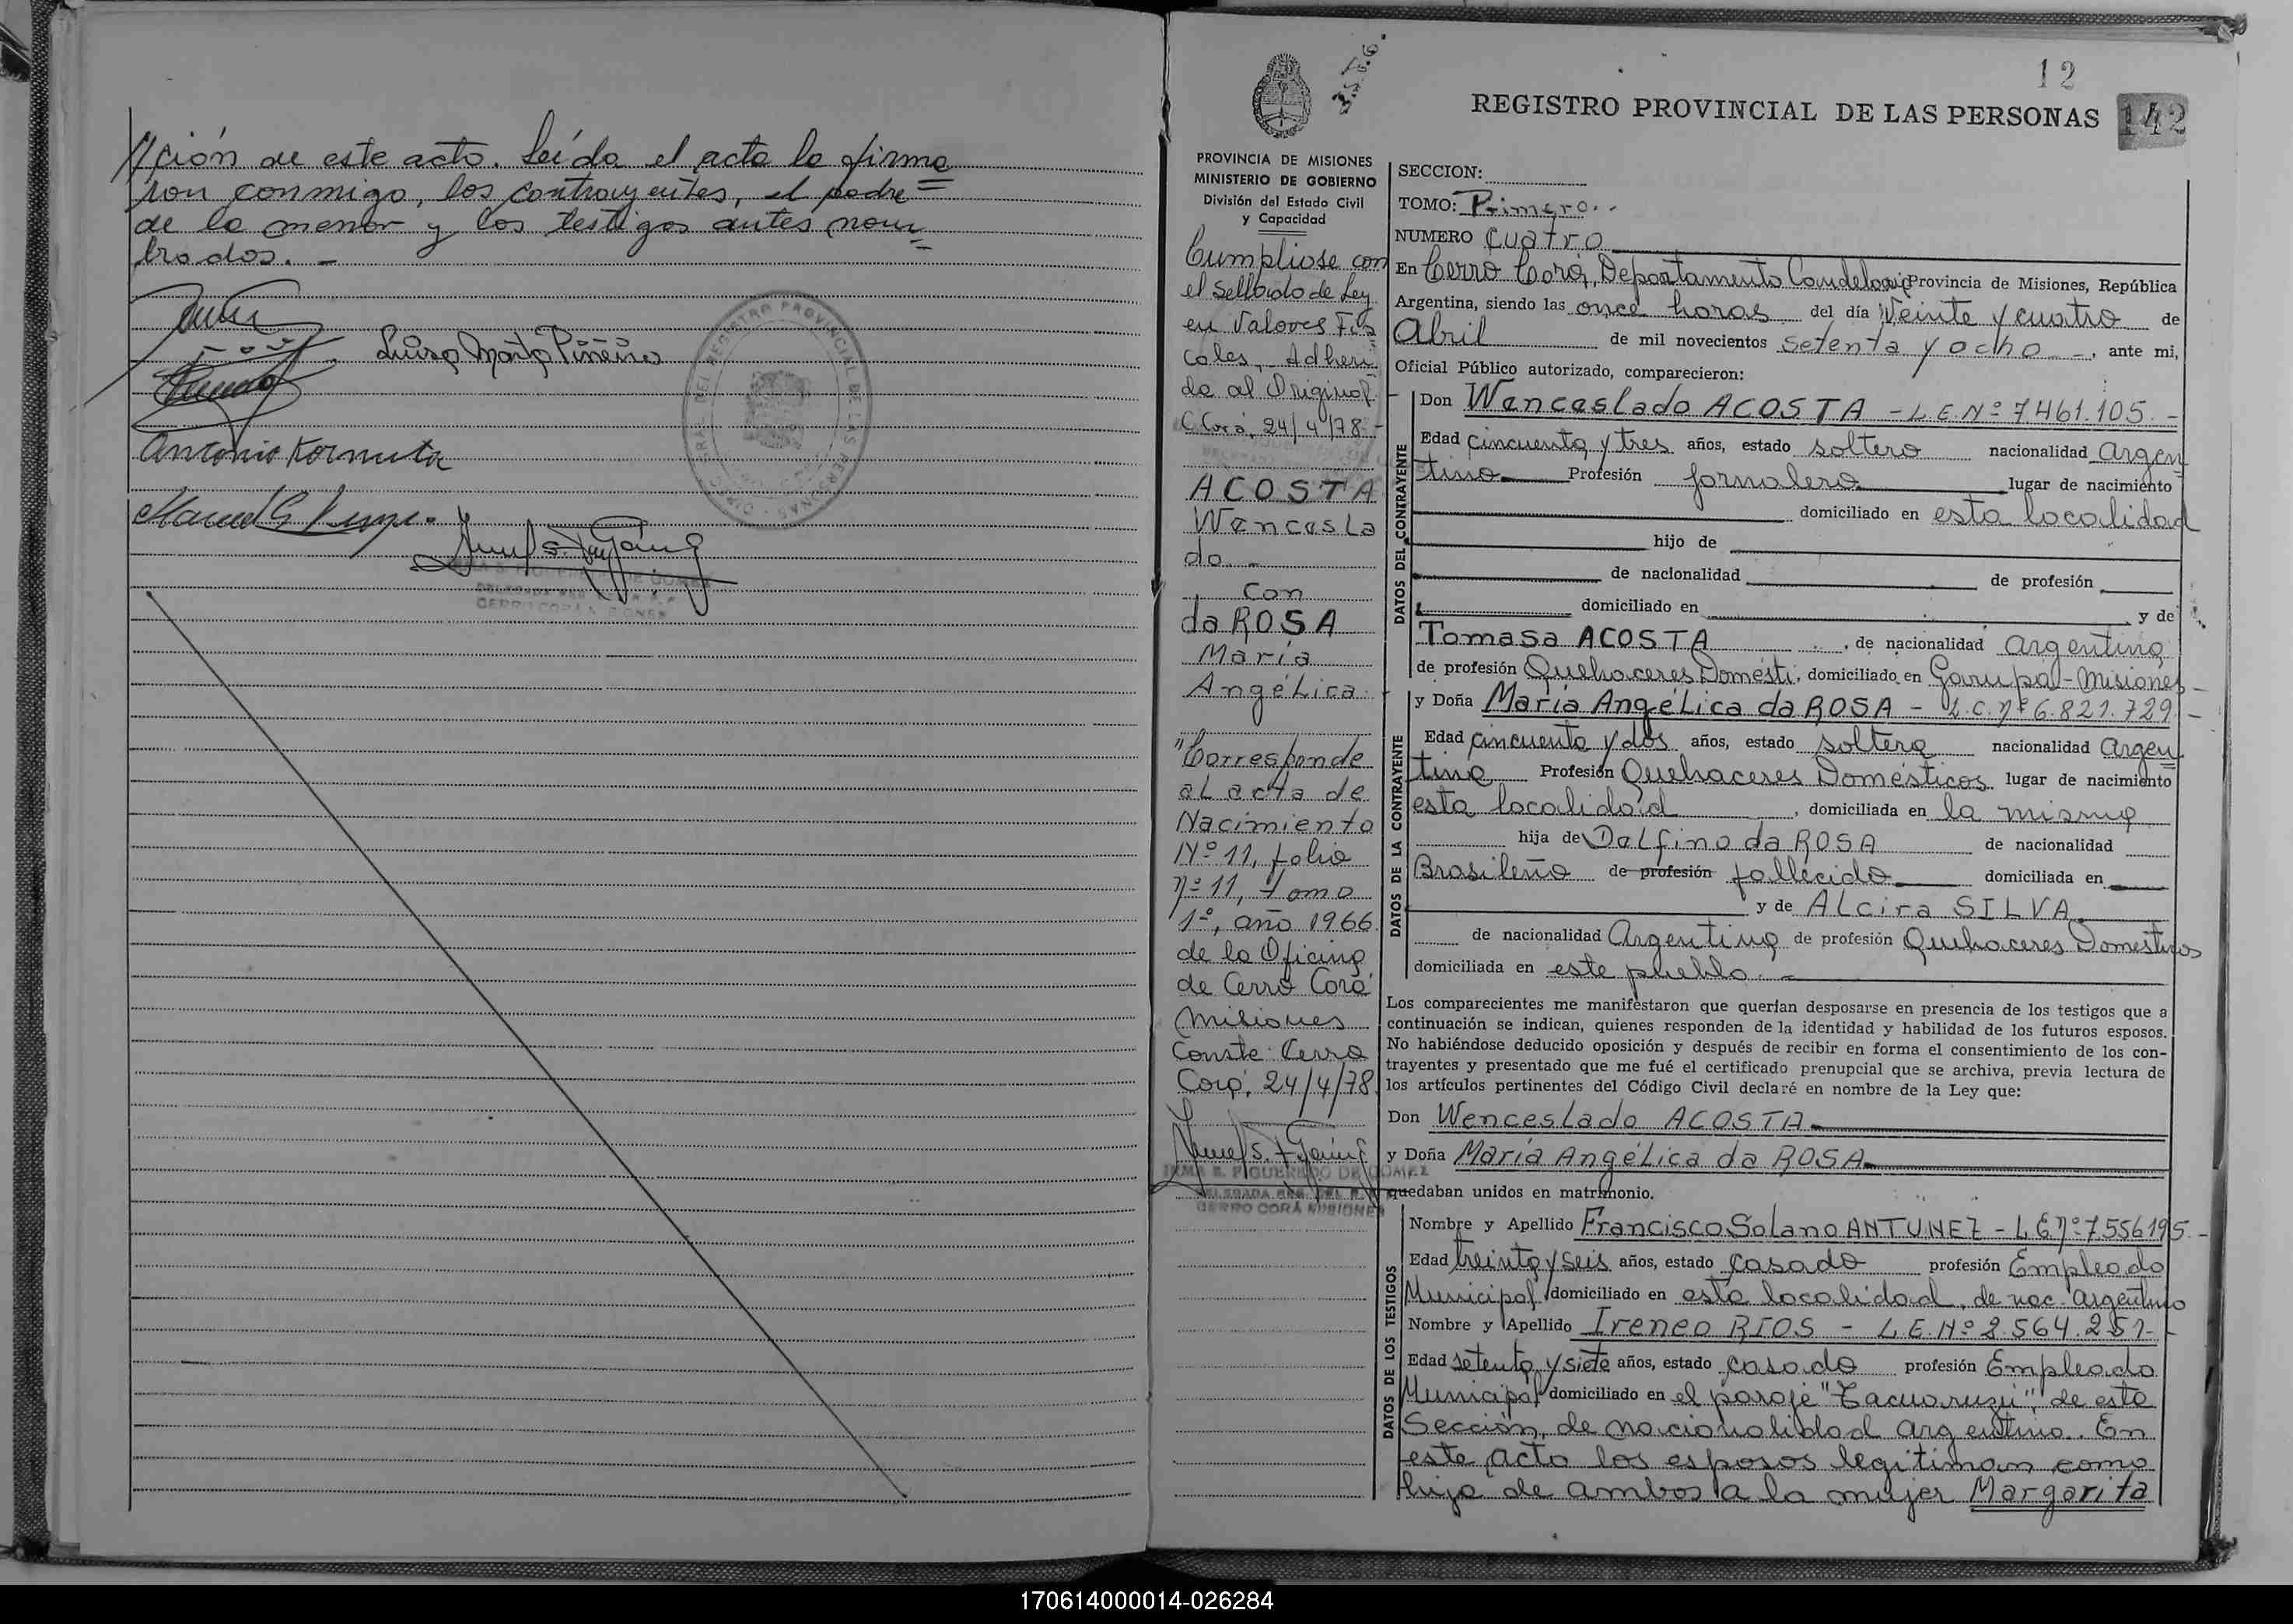 //ción de este acto. Leída el acta la firma
ron conmigo, los contrayentes, el padre =
de la menor y los testigos antes nom
brados. -
Luisa Marta Piñeiro
Antonio Kornuta
REGISTRO PROVINCIAL DE LAS PERSONAS
CERRO CORÁ MISIONES
12
REGISTRO PROVINCIAL DE LAS PERSONAS 142
PROVINCIA DE MISIONES
MINISTERIO DE GOBIERNO
División del Estado Civil
y Capacidad
Cumpliose con
el sellado de Ley
en Valores Fis
cales, Adheri
do al Original
C. Corá, 24/4/78.-
ACOSTA
Wencesla
do.-
Con
da ROSA
María
Angélica.
"Corresponde
al acta de
Nacimiento
Nº 11, folio
nº 11, tomo
1º, año 1966
de la Oficina
de Cerro Corá
Misiones
Conste. Cerro
Corá, 24/4/78
IRMA S. FIGUEREDO DE GOMEZ
CERRO CORÁ MISIONES
SECCION:
TOMO: Primero..
NUMERO Cuatro
En Cerro Corá, Departamento Candelaria Provincia de Misiones, República
Argentina, siendo las once horas del día Veinte y cuatro de
Abril de mil novecientos setenta y ocho -, ante mi,
Oficial Público autorizado, comparecieron:
DATOS DEL CONTRAYENTE
Don Wenceslado ACOSTA - L.E.Nº 7461.105.-
Edad cincuenta y tres años, estado soltero nacionalidad Argen
tino Profesión jornalero lugar de nacimiento
domiciliado en esta localidad
hijo de
de nacionalidad de profesión
domiciliado en y de
Tomasa ACOSTA, de nacionalidad argentina
de profesión Quehaceres Domésti, domiciliado en Garupa-Misiones-
DATOS DE LA CONTRAYENTE
y Doña María Angélica da ROSA - L.C.nº 6.821.729.-
Edad cincuenta y dos años, estado soltera nacionalidad Argen
tina Profesión Quehaceres Domésticos lugar de nacimiento
esta localidad, domiciliada en la misma
hija de Delfino da ROSA de nacionalidad
Brasileño de profesión fallecido domiciliada en
y de Alcira SILVA
de nacionalidad Argentina de profesión Quehaceres Domésticos
domiciliada en este pueblo.-
Los comparecientes me manifestaron que querían desposarse en presencia de los testigos que a
continuación se indican, quienes responden de la identidad y habilidad de los futuros esposos.
No habiéndose deducido oposición y después de recibir en forma el consentimiento de los con-
trayentes y presentado que me fué el certificado prenupcial que se archiva, previa lectura de
los artículos pertinentes del Código Civil declaré en nombre de la Ley que:
Don Wenceslado ACOSTA
y Doña María Angélica da ROSA
quedaban unidos en matrimonio.
DATOS DE LOS TESTIGOS
Nombre y Apellido Francisco Solano ANTUNEZ - L.E.nº 7556195.-
Edad treinta y seis años, estado casado profesión Empleado
Municipal domiciliado en esta localidad, de nac. argentino
Nombre y Apellido Ireneo RIOS - L.E.Nº 2.564.251-
Edad setenta y siete años, estado casado profesión Empleado
Municipal domiciliado en el paraje "Tacuaruzú", de esta
Sección, de nacionalidad argentino. En
este acto los esposos legitiman como
hija de ambos a la mujer Margarita
170614000014-026284